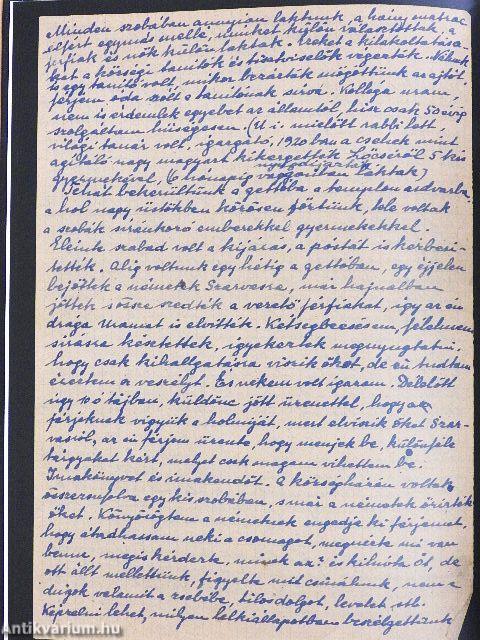 Minden szobában annyian laktunk, a hány matrac
elfért egymás mellé, minket külön választottak, a
férfiak és nők külön laktak. Ezeket a kilakoltatáso-
kat a községi tanítók és tisztviselők végezték. Nálunk
is egy tanító volt, mikor bezárták mögöttünk az ajtót,
férjem oda szólt a tanítónak sírva. Kolléga uram,
nem is érdemlek egyebet az államtól, hisz csak 50 évig
szolgáltam hűségesen. (U i. mielőtt rabbi lett,
világi tanár volt. igazgató, 1920 ban a csehek mint
agitáló nagy magyart kikergették Lőcséről 5 kis
gyermekével, 6 hónapig vaggonban laktak)
Tehát bekerültünk a gettóba a templom udvarba,
a hol nagy üstökben közösen főztünk, tele voltak
a szobák síránkozó emberekkel gyermekekkel.
Eleinte szabad volt a kijárás, a postát is kézbesí-
tették. Alig voltunk egy hétig a gettóban, egy éjjelen
bejöttek a németek Szarvasra, már hajnalban
jöttek s össze szedték a vezető férfiakat, így az én
drága Uramat is elvitték. Kétségbeesésem, félelmem
sírásra késztettek, igyekeztek megnyugtatni,
hogy csak kihallgatásra viszik őket, de én tudtam
éreztem a veszélyt. És nekem volt igazam. Délelőtt
úgy 10 ó tájban, küldönc jött üzenettel, hogy a
férjeknek vigyük a holmiját, mert elviszik őket Szar-
vasról, az én férjem üzente, hogy menjek be, különféle
tárgyakat kért, melyet csak magam vihettem be.
Imakönyvet és imakendőt. A községházán voltak
összezsúfolva egy kis szobában, s már a németek őrizték
őket. Könyörögtem a németnek engedje ki férjemet,
hogy átadhassam neki a csomagot, megnézte mi van
benne, mégis kérdezte, minek az? és kihívta őt, de
ott állt mellettünk, figyelte mit csinálunk, nem
dugok valamit a zsebébe, tilos dolgot, levelet stb.
Képzelni lehet, milyen lelkiállapotban beszélgettünk
Antikvarium.hu